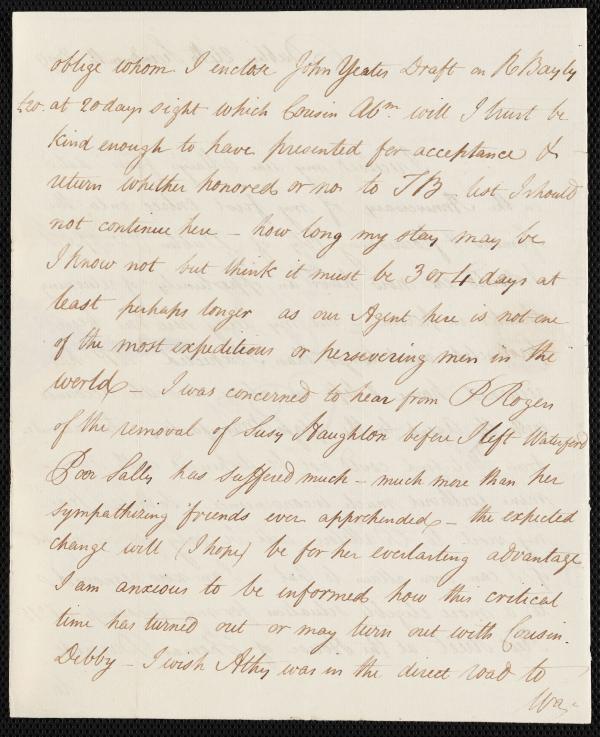 oblige whom I enclose John Yeates Draft on R Bayly
£20. at 20 days sight which Cousin Abm. will I trust be
kind enough to have presented for acceptance &
return whether honored or not to TB lest I should
not continue here - how long my stay may be
I know not but think it must be 3 or 4 days at
least perhaps longer as our Agent here is not one
of the most expeditious or persevering men in the
world - I was concerned to hear from P Rogers
of the removal of Susy Haughton before I left Waterford
Poor Sally has suffered much - much more than her
sympathizing friends ever apprehended - the expected
change will (I hope) be for her everlasting advantage
I am anxious to be informed how this critical
time has turned out or may turn out with Cousin
Debby - I wish Athy was in the direct road to
Wa